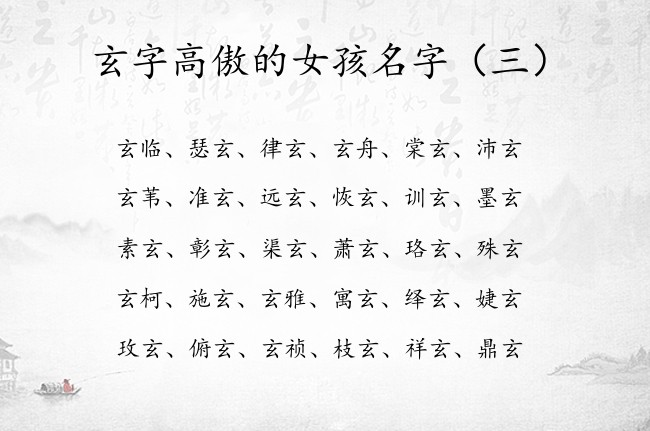 玄字高傲的女孩名字（三）
玄临、瑟玄、律玄、玄舟、棠玄、沛玄
玄苇、准玄、远玄、恢玄、训玄、墨玄
素玄、彰玄、渠玄、萧玄、珞玄、殊玄
玄柯、施玄、玄雅、寓玄、绎玄、婕玄
玫玄、俯玄、玄祯、枝玄、祥玄、鼎玄